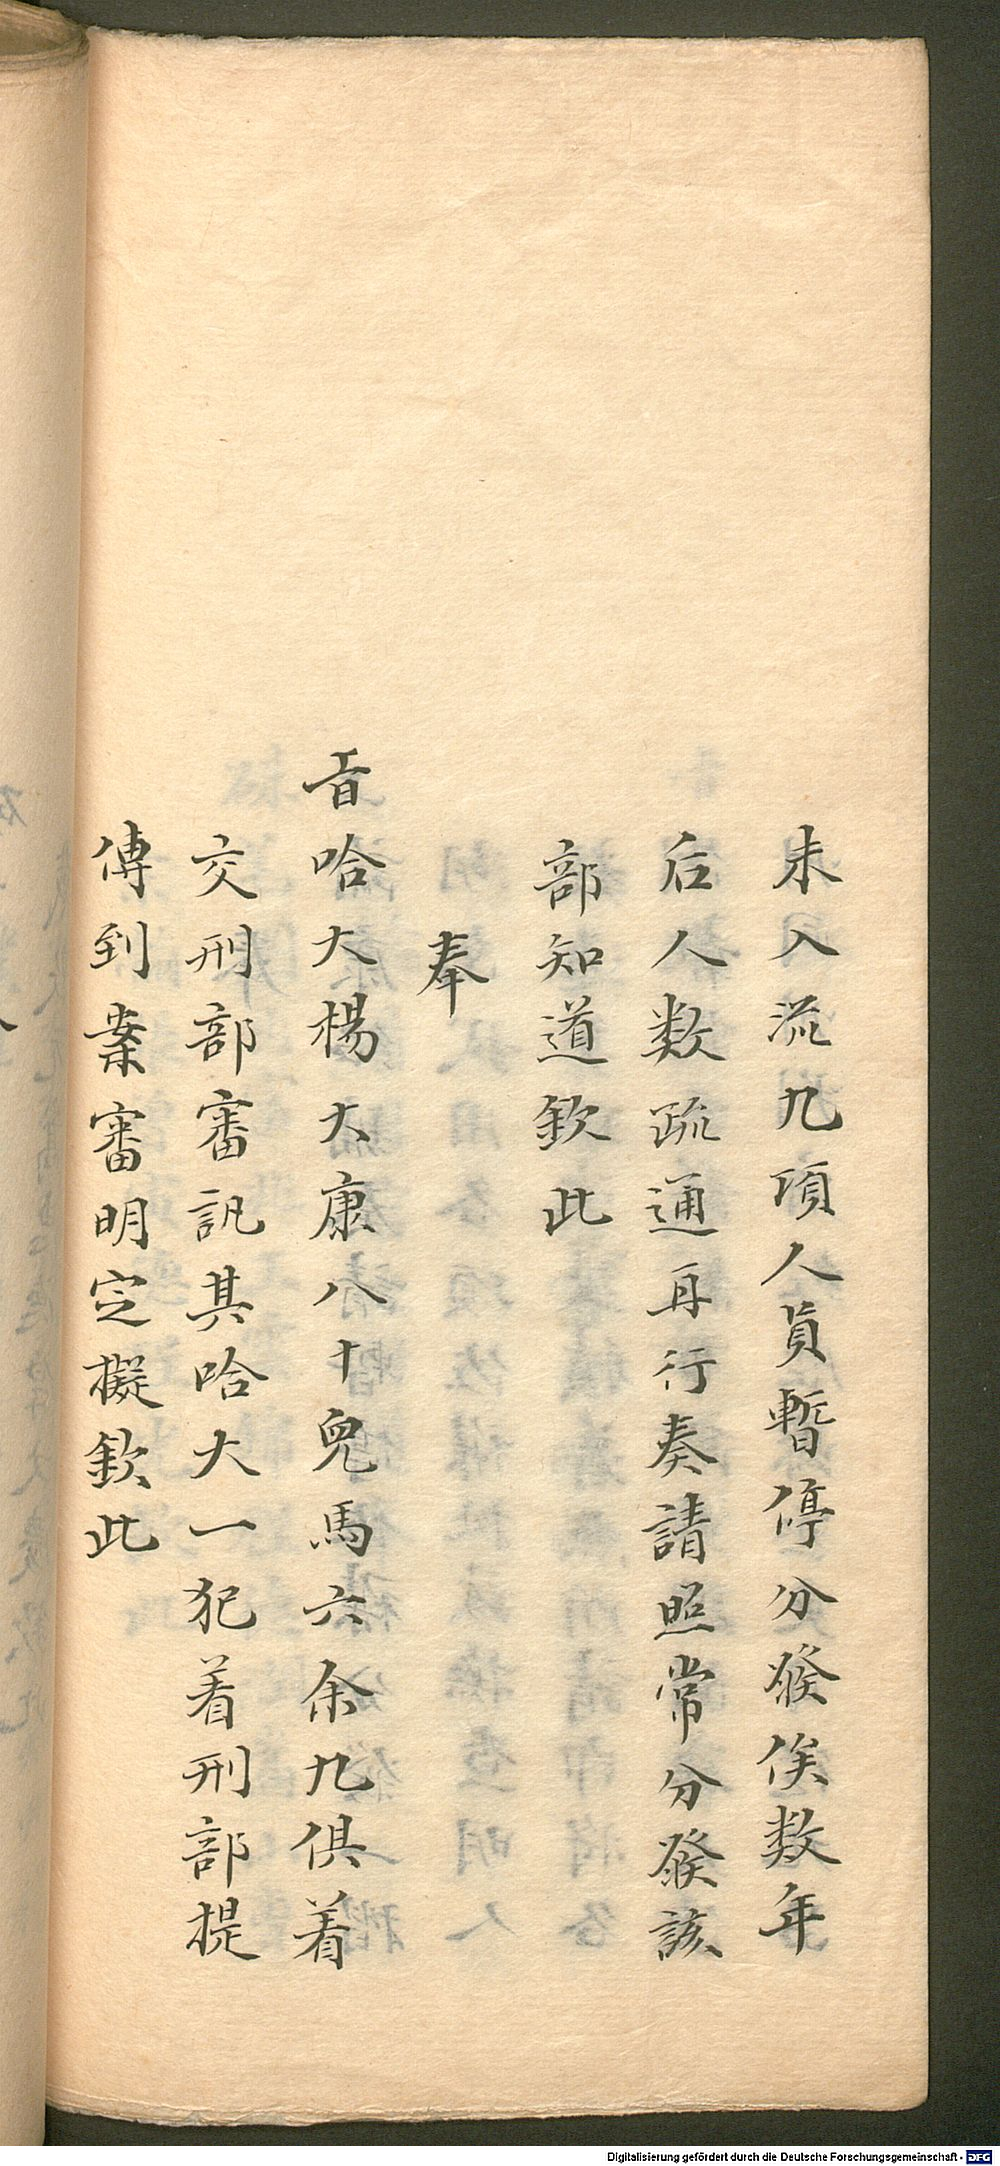 未入流九項人員暫停分發俟数年
后人数疏通再行奏請照常分發該
部知道欽此
奉
旨哈大楊大康八十兒馬六余九俱着
交刑部審訊其哈大一犯着刑部提
傳到案審明定擬欽此
Digitalisierung gefördert durch die Deutsche Forschungsgemeinschaft - DFG